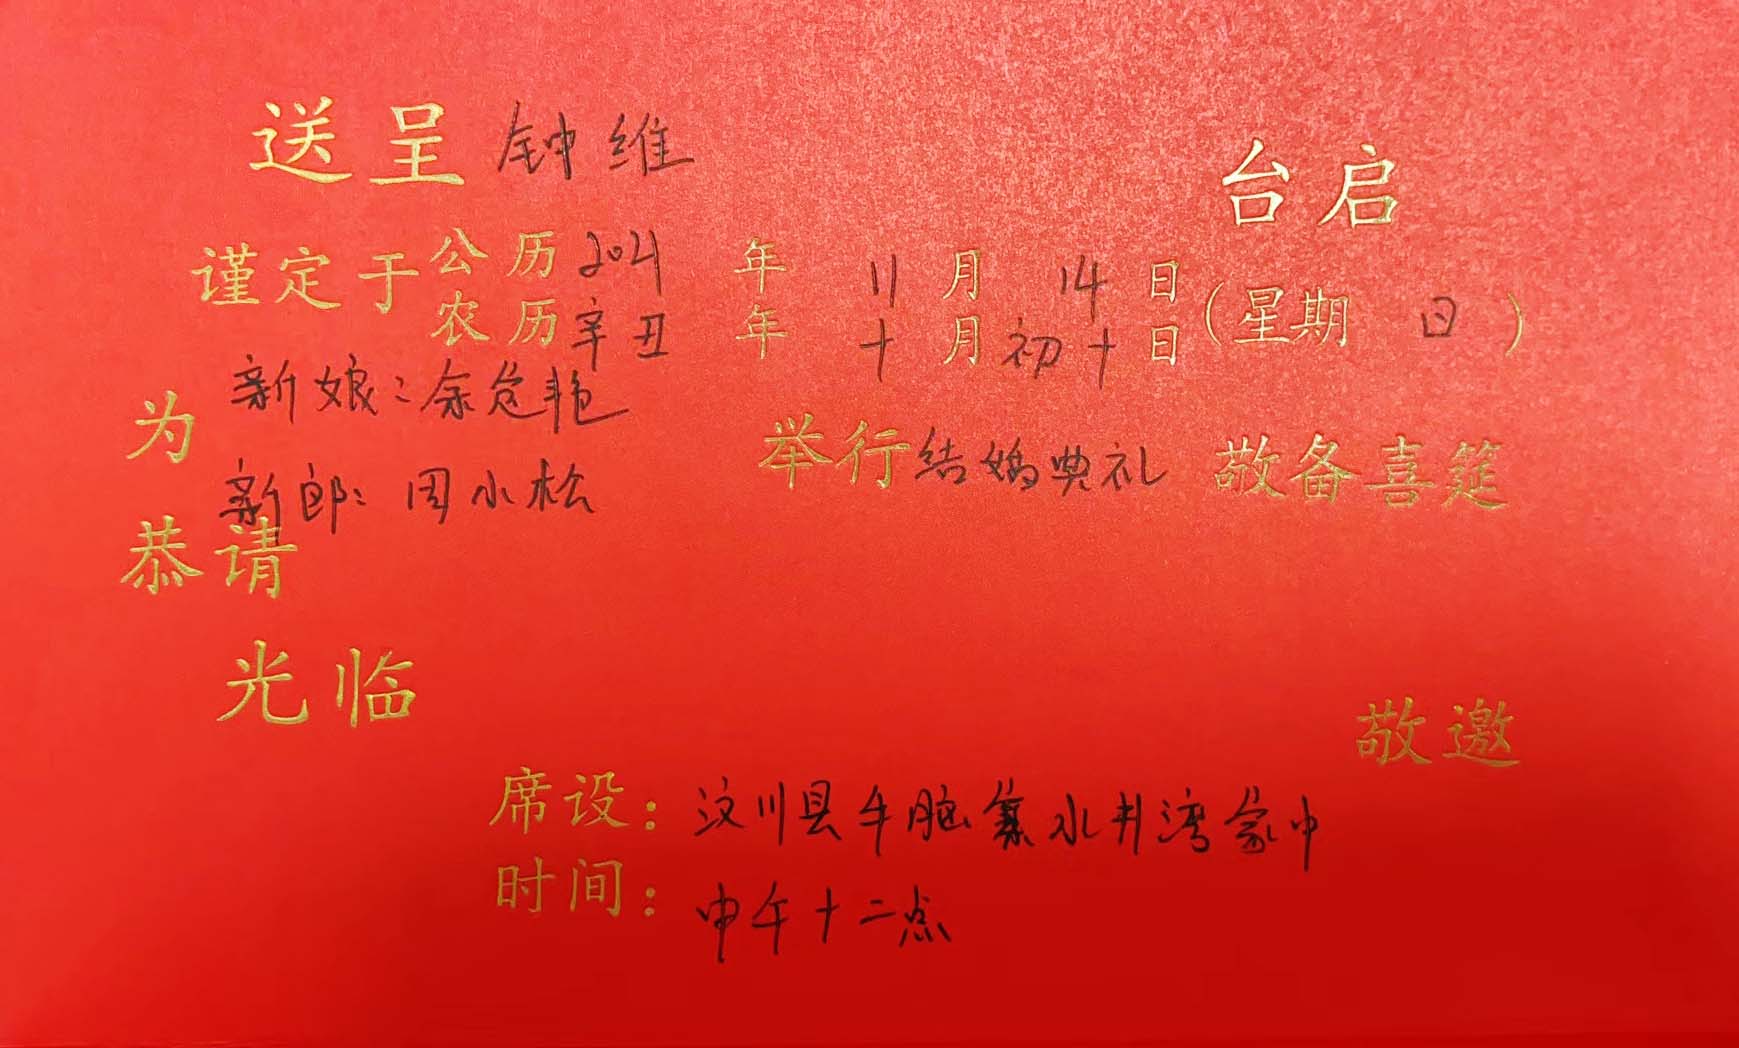 送呈 钟维 台启
谨定于 公历 2021 年 11 月 14 日
农历 辛丑 年 十 月 初十 日 (星期 日)
为 新娘：余艳
新郎：周小松 举行 结婚典礼 敬备喜筵
恭请
光临
敬邀
席设：汶川县牛脑寨水井湾家中
时间：中午十二点